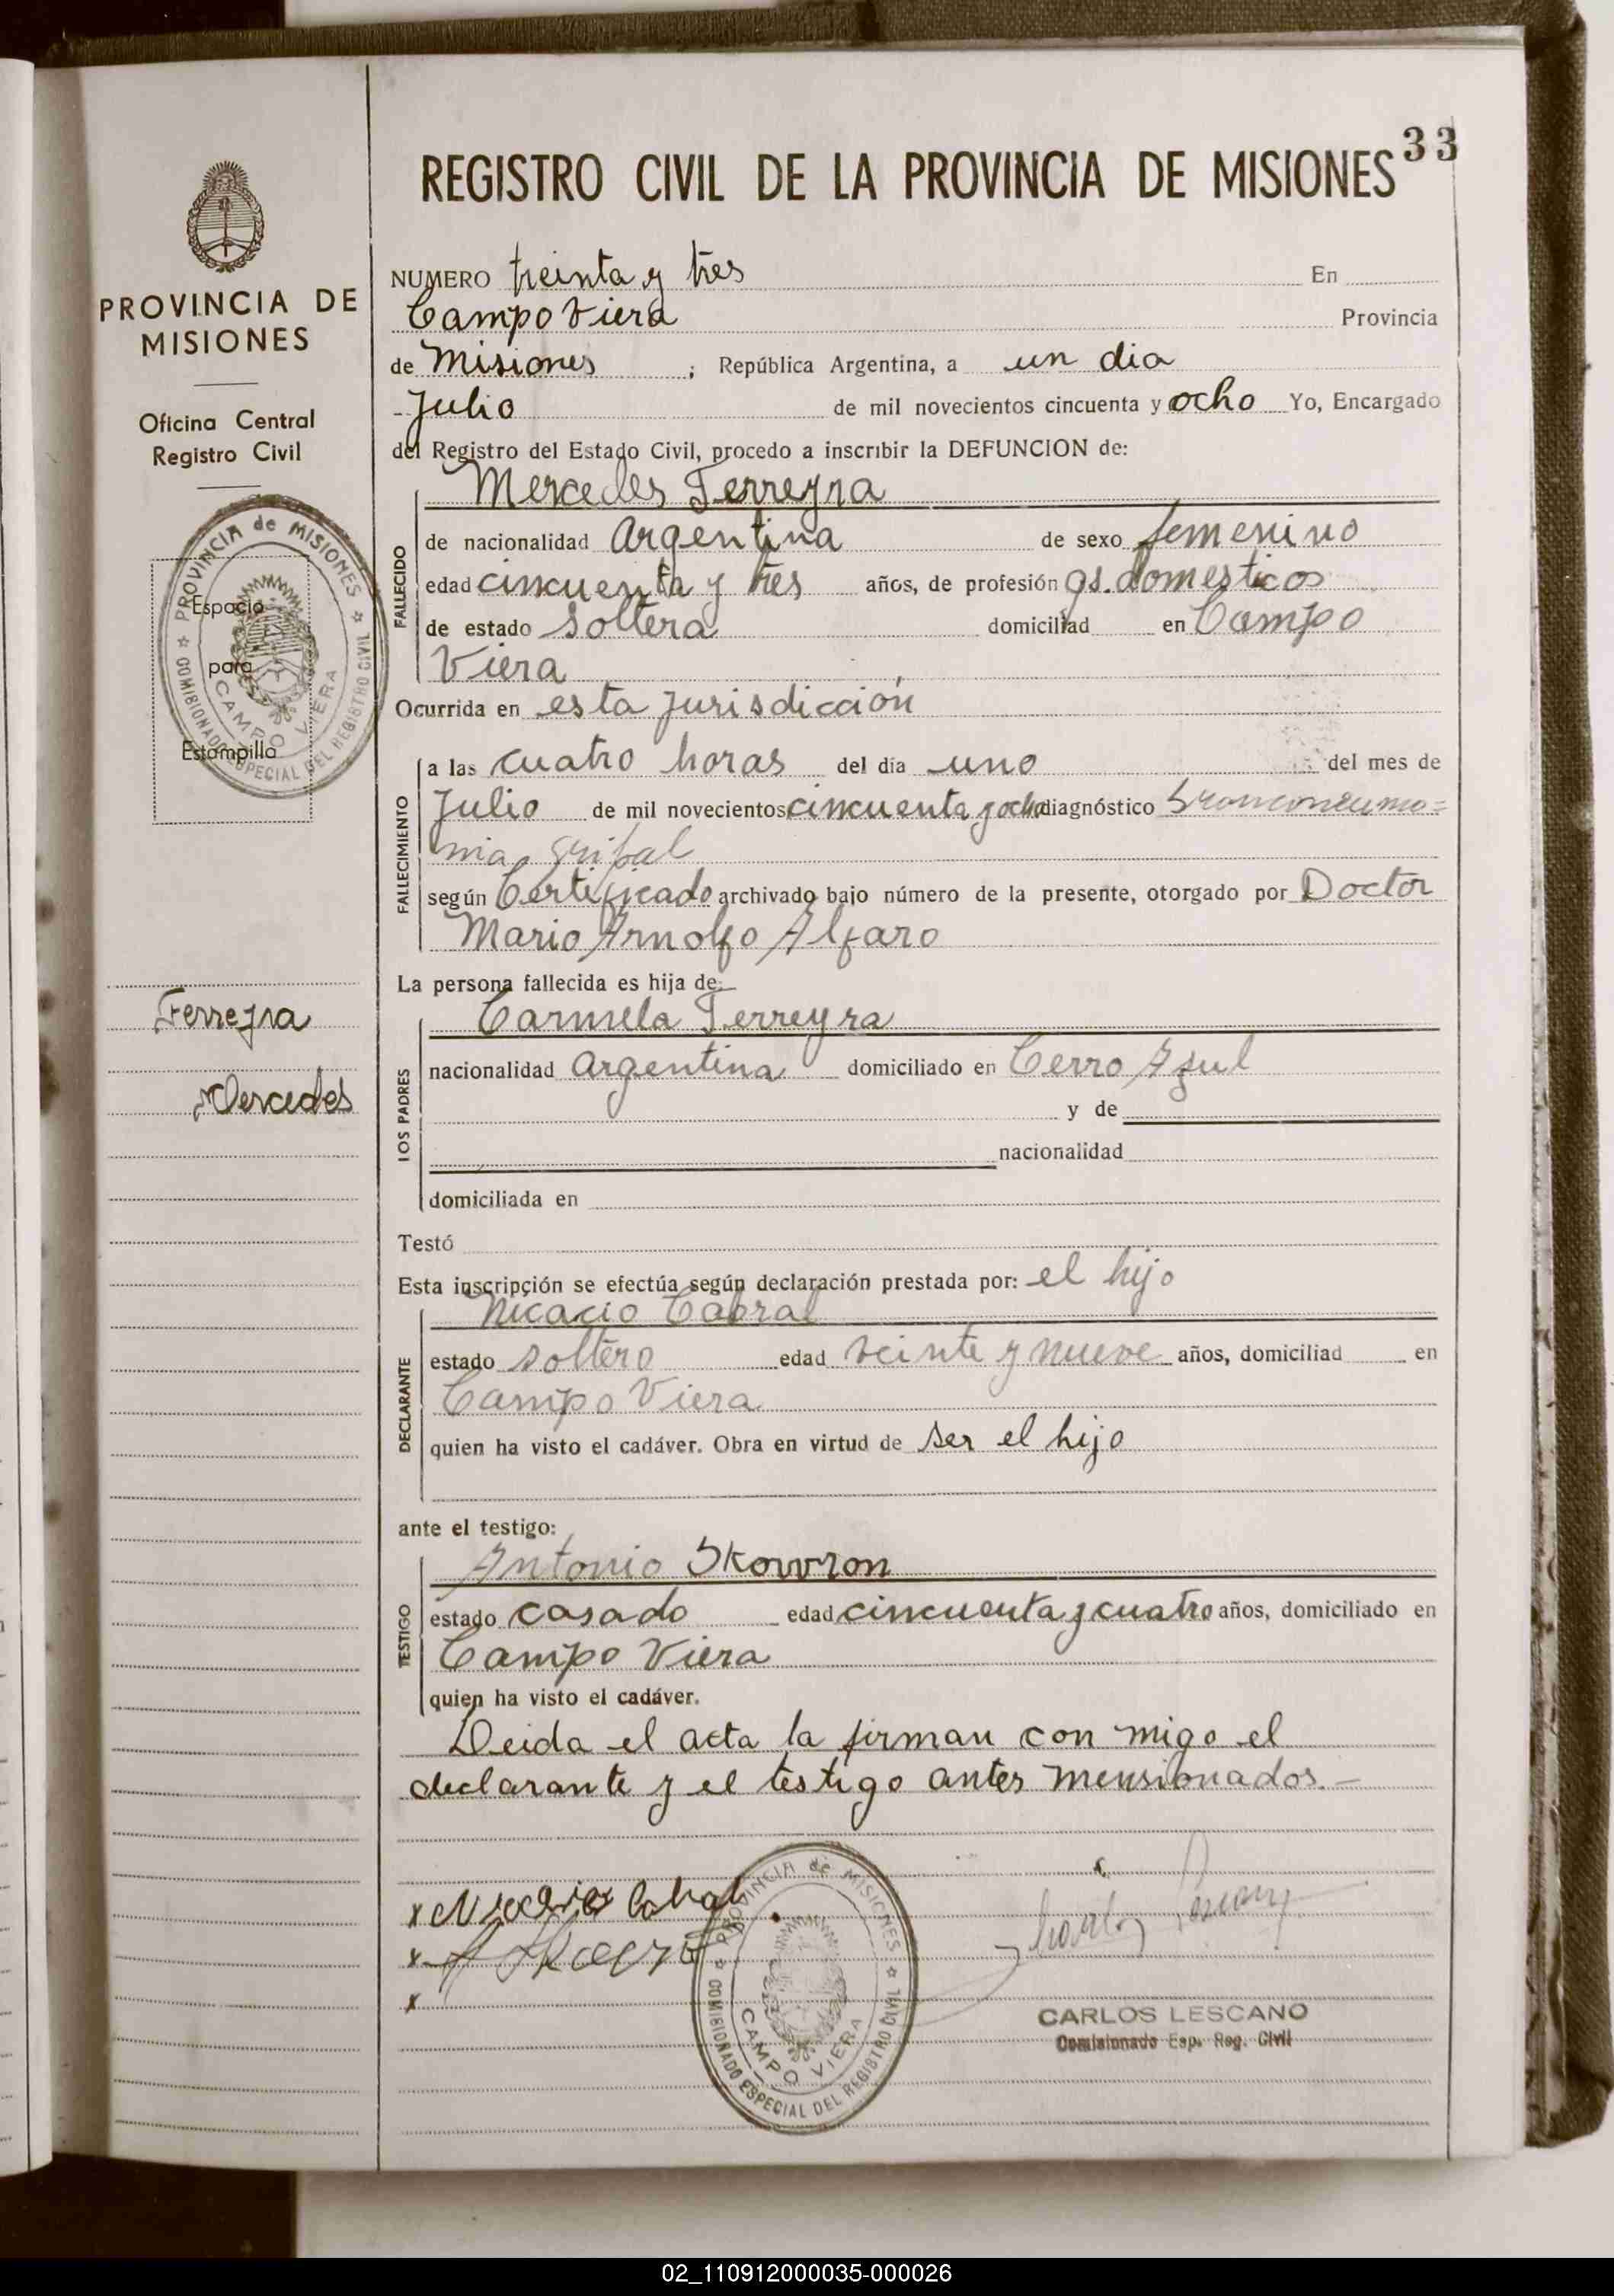 33
REGISTRO CIVIL DE LA PROVINCIA DE MISIONES
PROVINCIA DE
MISIONES
Oficina Central
Registro Civil
PROVINCIA de MISIONES
COMISIONADO ESPECIAL DEL REGISTRO CIVIL
CAMPO VIERA
Espacio
para
Estampilla
Ferreyra
Mercedes
NUMERO treinta y tres En
Campo Viera Provincia
de Misiones ; República Argentina, a un dia
Julio de mil novecientos cincuenta y ocho Yo, Encargado
del Registro del Estado Civil, procedo a inscribir la DEFUNCION de:
FALLECIDO
Mercedes Ferreyra
de nacionalidad Argentina de sexo femenino
edad cincuenta y tres años, de profesión qs. domesticos
de estado soltera domiciliad en Campo
Viera
Ocurrida en esta jurisdicción
FALLECIMIENTO
a las cuatro horas del día uno del mes de
Julio de mil novecientos cincuenta y ocho diagnóstico Bronconeumo=
nia gripal
según Certificado archivado bajo número de la presente, otorgado por Doctor
Mario Arnolfo Alfaro
La persona fallecida es hija de:
LOS PADRES
Carmela Ferreyra
nacionalidad Argentina domiciliado en Cerro Azul
y de
nacionalidad
domiciliada en
Testó
Esta inscripción se efectúa según declaración prestada por: el hijo
DECLARANTE
Nicacio Cabral
estado soltero edad veinte y nueve años, domiciliad en
Campo Viera
quien ha visto el cadáver. Obra en virtud de ser el hijo
ante el testigo:
TESTIGO
Antonio Skowron
estado casado edad cincuenta y cuatro años, domiciliado en
Campo Viera
quien ha visto el cadáver.
Leida el acta la firman con migo el
declarante y el testigo antes mensionados.-
x Nicacio Cabral
x
x
PROVINCIA de MISIONES
COMISIONADO ESPECIAL DEL REGISTRO CIVIL
CAMPO VIERA
CARLOS LESCANO
Comisionado Esp. Reg. Civil
02_110912000035-000026